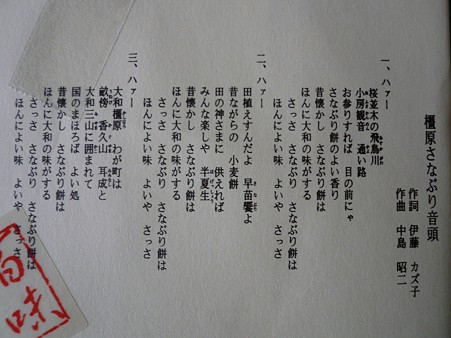 橿原さなぶり音頭
作詞 伊藤 カズ子
作曲 中島 昭二
一、ハァー
桜並木の飛鳥川
小房観音 通い路
お参りすれば 目の前にゃ
さなぶり餅のよい香り
昔懐かし さなぶり餅は
ほんに大和の味がする
さっさ さなぶり さなぶり餅は
ほんによい味 よいや さっさ
二、ハァー
田植えすんだよ 早苗饗よ
昔ながらの 小麦餅
田の神さまに 供えれば
みんな楽しや 半夏生
昔懐かし さなぶり餅は
ほんに大和の味がする
さっさ さなぶり さなぶり餅は
ほんによい味 よいや さっさ
三、ハァー
大和橿原 わが町は
畝傍 香久山 耳成と
大和三山に囲まれて
国のまほろば よい処
昔懐かし さなぶり餅は
ほんに大和の味がする
さっさ さなぶり さなぶり餅は
ほんによい味 よいや さっさ
味